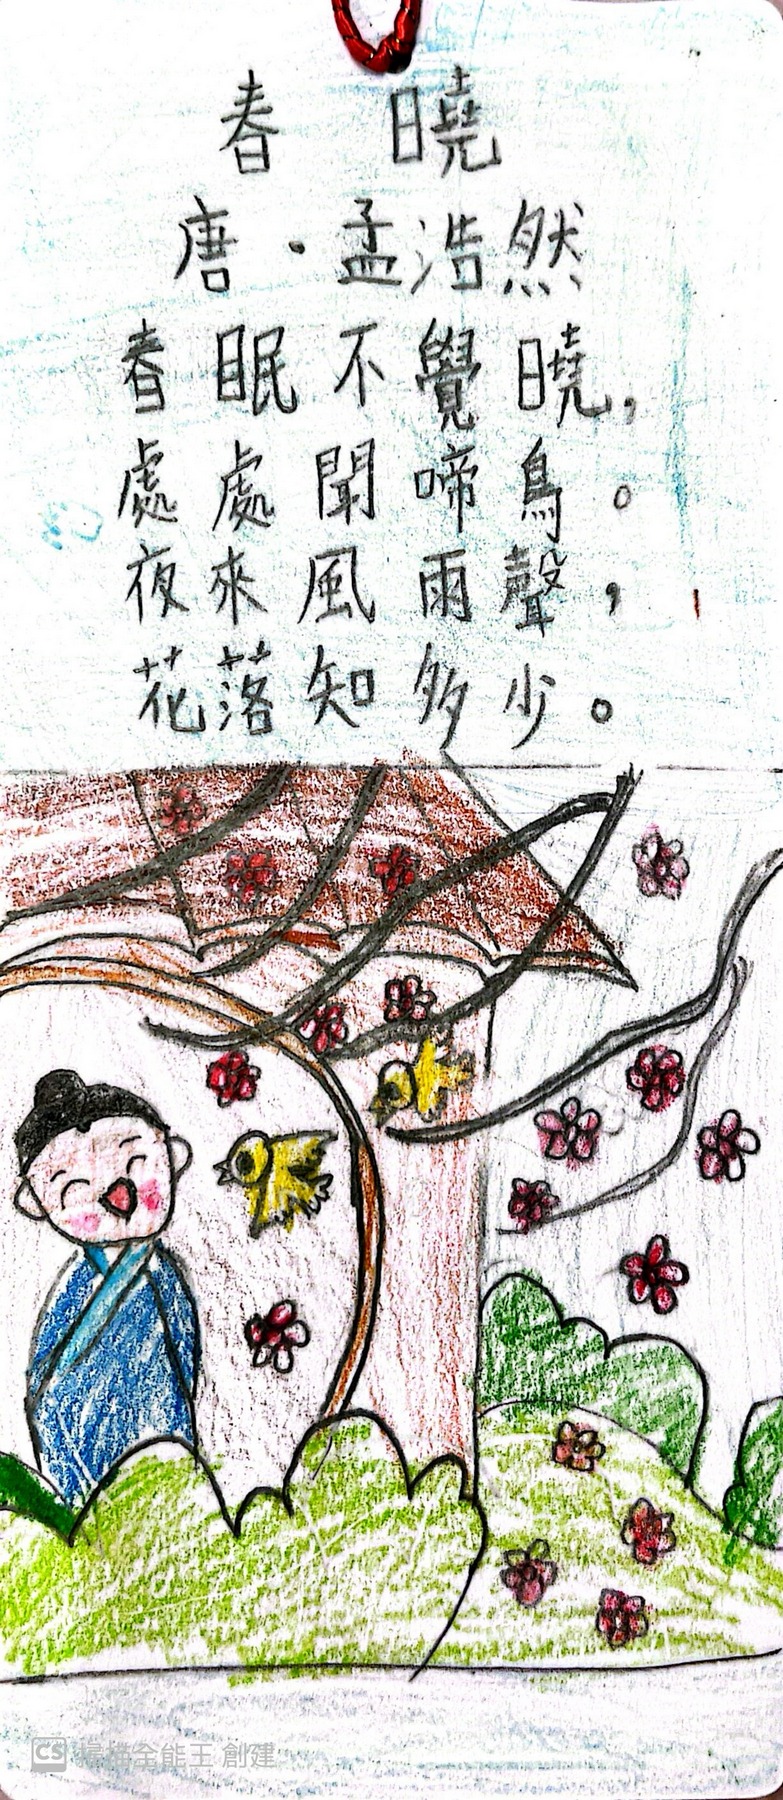 春曉
唐·孟浩然
春眠不覺曉，
處處聞啼鳥。
夜來風雨聲，
花落知多少。
CS 掃描全能王 創建